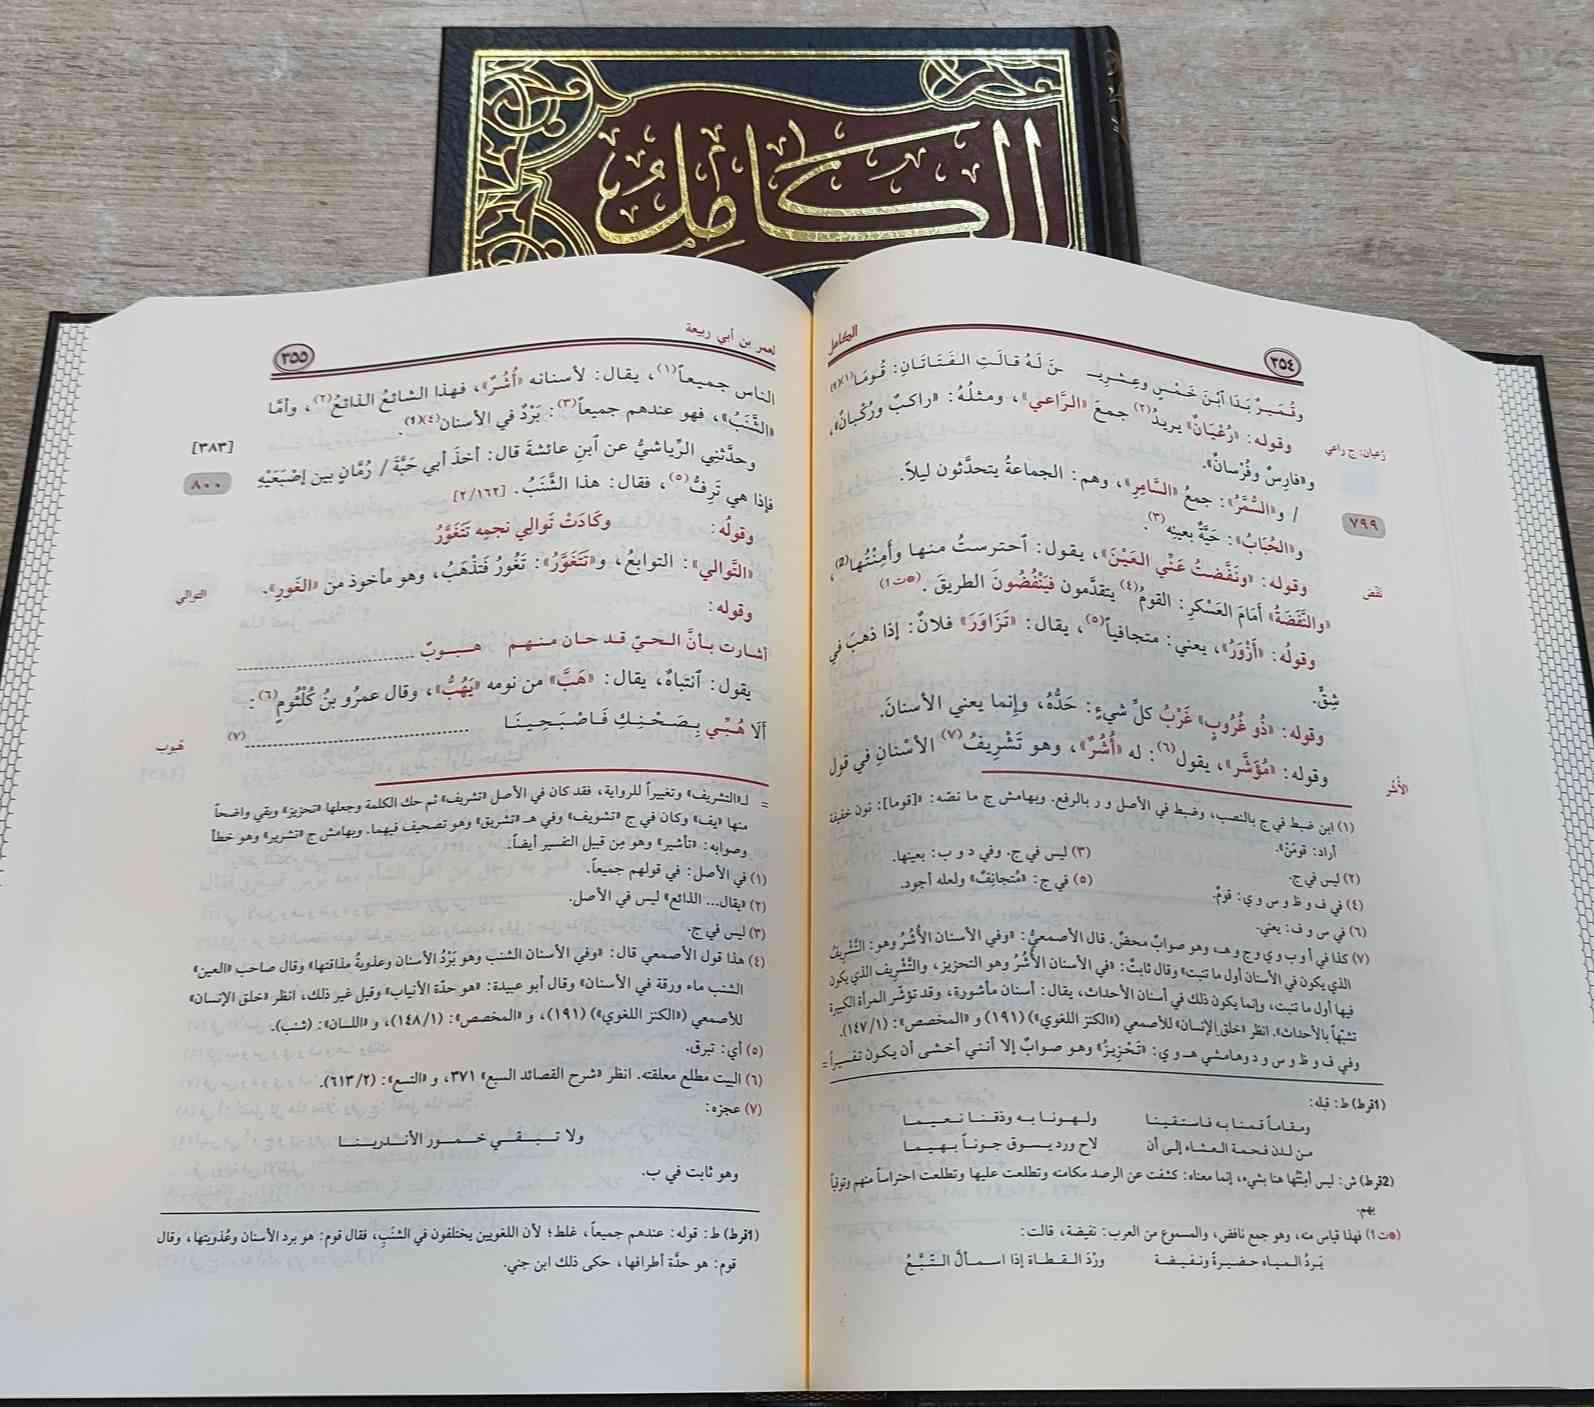 الكامل
الكامل
٣٥٤
وقُمَيرٌ بَدَا ٱبْنَ خَمْسٍ وعِشريـ ـنَ لَهُ قالَتِ الفَتَاتَانِ: قُومَا(١)(٩)
وقوله: «رُعْيَانٌ» يريدُ(٢) جمعَ «الرَّاعي»، ومثلُهُ: «راكبٌ ورُكْبانٌ،
رُعيان: ج راعي
و«فارِسٌ وفُرْسانٌ».
/ و«السُّمَّرُ»: جمعُ «السَّامِرِ»، وهم: الجماعةُ يتحدَّثون ليلاً.
٧٩٩
و«الحُبَابُ»: حَيَّةٌ بعينِه(٣).
وقوله: «ونَفَّضتُ عَنِّي العَيْنَ»، يقول: ٱحترستُ منها وأَمِنْتُها(2)،
نَفَض
«والنَّفَضَةُ» أمَامَ العَسْكرِ: القومُ(٤) يتقدَّمون فيَنْفُضُونَ الطريقَ.(●ت1)
وقولُه: «أَزْوَرُ»، يعني: متجافياً(٥)، يقال: «تَزَاوَرَ» فلانٌ: إذا ذهبَ في
شِقٍّ.
وقوله: «ذُو غُرُوبٍ» غَرْبُ كلِّ شيءٍ: حَدُّهُ، وإنما يعني الأسنانَ.
وقوله: «مُؤَشَّر»، يقول(٦): له «أُشُرٌ»، وهو تَشْرِيفُ(٧) الأسْنانِ في قول
الأُشُر
(١) ابن ضبط في ج بالنصب، وضبط في الأصل و ر بالرفع. وبهامش ج ما نصّه: «[قوما]: نون خفيفة
أراد: قومَنْ».
(٢) ليس في ج. (٣) ليس في ج. وفي د و ب: بعينها.
(٤) في ف و ظ و س و ي: قومٌ. (٥) في ج: «مُتجانِفٌ» ولعله أجود.
(٦) في س و ف: يعني.
(٧) كذا في أ و ب و ي و ج و هـ، وهو صوابٌ محضٌ. قال الأصمعيُّ: «وفي الأسنان الأُشُرُ وهو: التَّشْرِيفُ
الذي يكون في الأسنان أول ما تنبت» وقال ثابتٌ: «في الأسنان الأُشُرُ وهو التحزيز، والتَّشْرِيف الذي يكون
فيها أول ما تنبت، وإنما يكون ذلك في أسنان الأحداث، يقال: أسنان مأشورة، وقد تؤشّر المرأة الكبيرة
تشبُّهاً بالأحداث». انظر «خلق الإنسان» للأصمعي («الكنز اللغوي») (١٩١) و «المخصص»: (١/١٤٧).
وفي ف و ظ و س و د وهامشي هـ و ي: «تَحْزِيزُ» وهو صوابٌ إلا أنني أخشى أن يكون تفسيراً =
(1قرط) ط: قبله:
ومـقـاماً قـمـنـا بـه فـاسـتـقـيـنـا ولـهـونـا بـه وذقـنـا نـعـيـمـا
مـن لـدن فـحـمـة الـعـشـاء إلى أن لاح ورد يـسـوق جـونـاً بـهـيـمـا
(2قرط) ش: ليس أمِنْتُها هنا بشيء، إنما معناه: كشفت عن الرصد مكامنه وتطلعت عليها وتطلعت احتراساً منهم وتوقياً
بهم.
(●ت1) فهذا قياس منه، وهو جمع نافض، والمسموع من العرب: نفيضة، قالت:
يَـردُ الـمـيـاه حـضـيـرةً ونـفـيـضـة ورْدَ الـقـطـاة إذا اسـمـألَّ الـتـبَّـعُ
لعمر بن أبي ربيعة
٣٥٥
الناس جميعاً(١)، يقال: لأسنانه «أُشُرٌ»، فهذا الشائعُ الذائعُ(٢)، وأمَّا
«الشَّنَبُ»، فهو عندهم جميعاً(٣): بَرْدٌ في الأسنان(٤)(٩).
[٣٨٣]
وحدَّثني الرِّياشيُّ عن ٱبنِ عائشةَ قال: أخذَ أبي حَبَّةَ / رُمَّانٍ بين إصْبَعَيْهِ
٨٠٠
فإذا هي تَرِفُّ(٥)، فقال: هذا الشَّنَبُ. [٢/١٦٢]
وقولُه: وكَادَتْ تَوالِي نجمِه تَتَغَوَّرُ
«التَّوالي»: التوابعُ، و«تَتَغَوَّرُ»: تَغُورُ فَتذْهَبُ، وهو مأخوذ من «الغَورِ».
التوالي
وقوله:
أشـارت بـأنَّ الـحـيّ قـد حـان مـنـهـم هـبـوبٌ ........
يقول: ٱنتباهٌ، يقال: «هَبَّ» من نومه «يَهُبُّ»، وقال عمرُو بنُ كُلْثُومٍ(٦):
ألَا هُبِّي بِصَحْنِكِ فَاصْبَحِينَا ........(٧)
هبوب
= لـ«التشريف» وتغييراً للرواية، فقد كان في الأصل «تشريف» ثم حك الكلمة وجعلها «تحزيز» وبقي واضحاً
منها «يف» وكان في ج «تشويف» وفي هـ «تشريق» وهو تصحيف فيهما. وبهامش ج «تشرير» وهو خطأ
وصوابه: «تأشير» وهو من قبيل التفسير أيضاً.
(١) في الأصل: في قولهم جميعاً.
(٢) «يقال... الذائع» ليس في الأصل.
(٣) ليس في ج.
(٤) هذا قول الأصمعي قال: «وفي الأسنان الشنب وهو بَرْدُ الأسنان وعذوبةُ مذاقتها» وقال صاحب «العين»
الشنب ماء ورقة في الأسنان» وقال أبو عبيدة: «هو حدّة الأنياب» وقيل غير ذلك، انظر «خلق الإنسان»
للأصمعي («الكنز اللغوي») (١٩١)، و «المخصص»: (١/١٤٨)، و «اللسان»: (شنب).
(٥) أي: تبرق.
(٦) البيت مطلع معلقته. انظر «شرح القصائد السبع» ٣٧١، و «التسع»: (٢/٦١٣).
(٧) عجزه:
ولا تـبـقـي خـمـور الأنـدريـنـا
وهو ثابت في ب.
(1قرط) ط: قوله: عندهم جميعاً، غلط؛ لأن اللغويين يختلفون في الشنَبِ، فقال قوم: هو برد الأسنان وعُذوبتها، وقال
قوم: هو حدَّة أطرافها، حكى ذلك ابن جني.